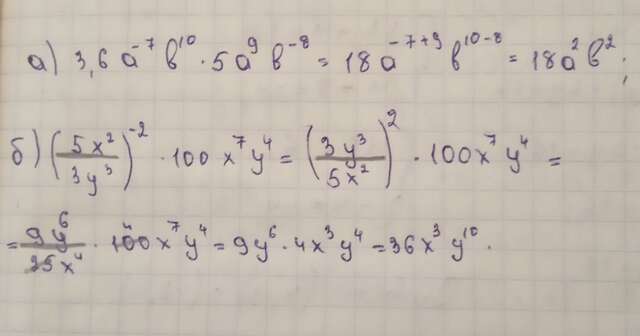 а) 3,6a⁻⁷b¹⁰ · 5a⁹b⁻⁸ = 18a⁻⁷⁺⁹b¹⁰⁻⁸ = 18a²b²;
б) (5x²/3y³)⁻² · 100x⁷y⁴ = (3y³/5x²)² · 100x⁷y⁴ =
= 9y⁶/25x⁴ · 100x⁷y⁴ = 9y⁶ · 4x³y⁴ = 36x³y¹⁰.